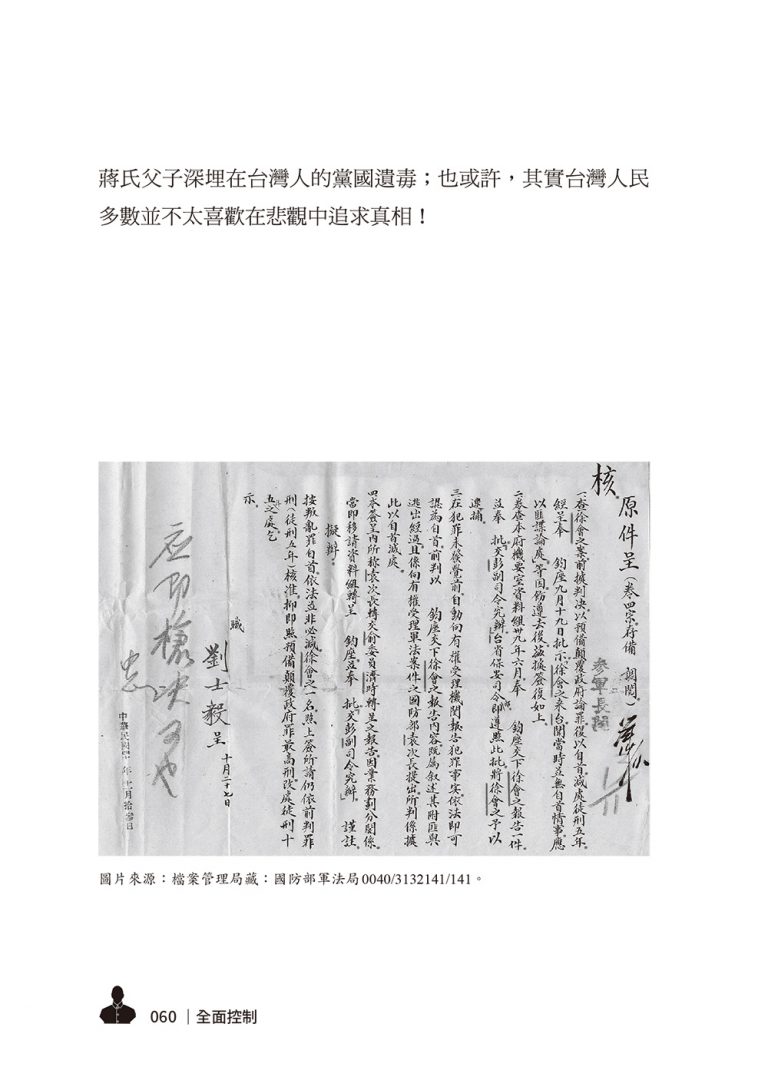 蔣氏父子深埋在台灣人的黨國遺毒；也或許，其實台灣人民
多數並不太喜歡在悲觀中追求真相！
核
原件呈（卷四宗存備 調閱）
參軍長閱
一、查徐會之案前據判決以預備顛覆政府論罪復以自首減處徒刑五年。
經呈奉 鈞座九月十九日批示「徐會之來台開當時並無自首情事應
以匪諜論處」等因飭遵去後茲據簽復如上。
二、卷查本府機要室資料組卅九年六月奉 鈞座交下徐會之報告一件。
並奉 批「交彭副司令究辦」台省保安司令即遵照此批將徐會之予以
逮捕。
三、在犯罪未發覺前自動向有權受理機關報告犯罪事實依法即可
認為自首。前判以 鈞座交下徐會之報告內容既屬敘述其附匪與
逃出經過且係向有權受理軍法案件之國防部袁次長提出所判係據
此以自首減處。
四、本簽呈內所稱袁次長轉交俞委員濟時轉呈之報告因業務劃分關係。
當即移請資料組轉呈 鈞座並奉 批「交彭副司令究辦」謹註。
擬辦：
按叛亂罪自首。依法並非必減徐會之一名照上簽所請仍依前判罪
刑（徒刑五年）核准。抑即照預備顛覆政府罪最高刑改處徒刑十
五之處乞
示。
職 劉士毅 呈 十月二十七日
應即槍決可也
中華民國 年 月拾 日
圖片來源：檔案管理局藏：國防部軍法局0040/3132141/141。
060｜全面控制